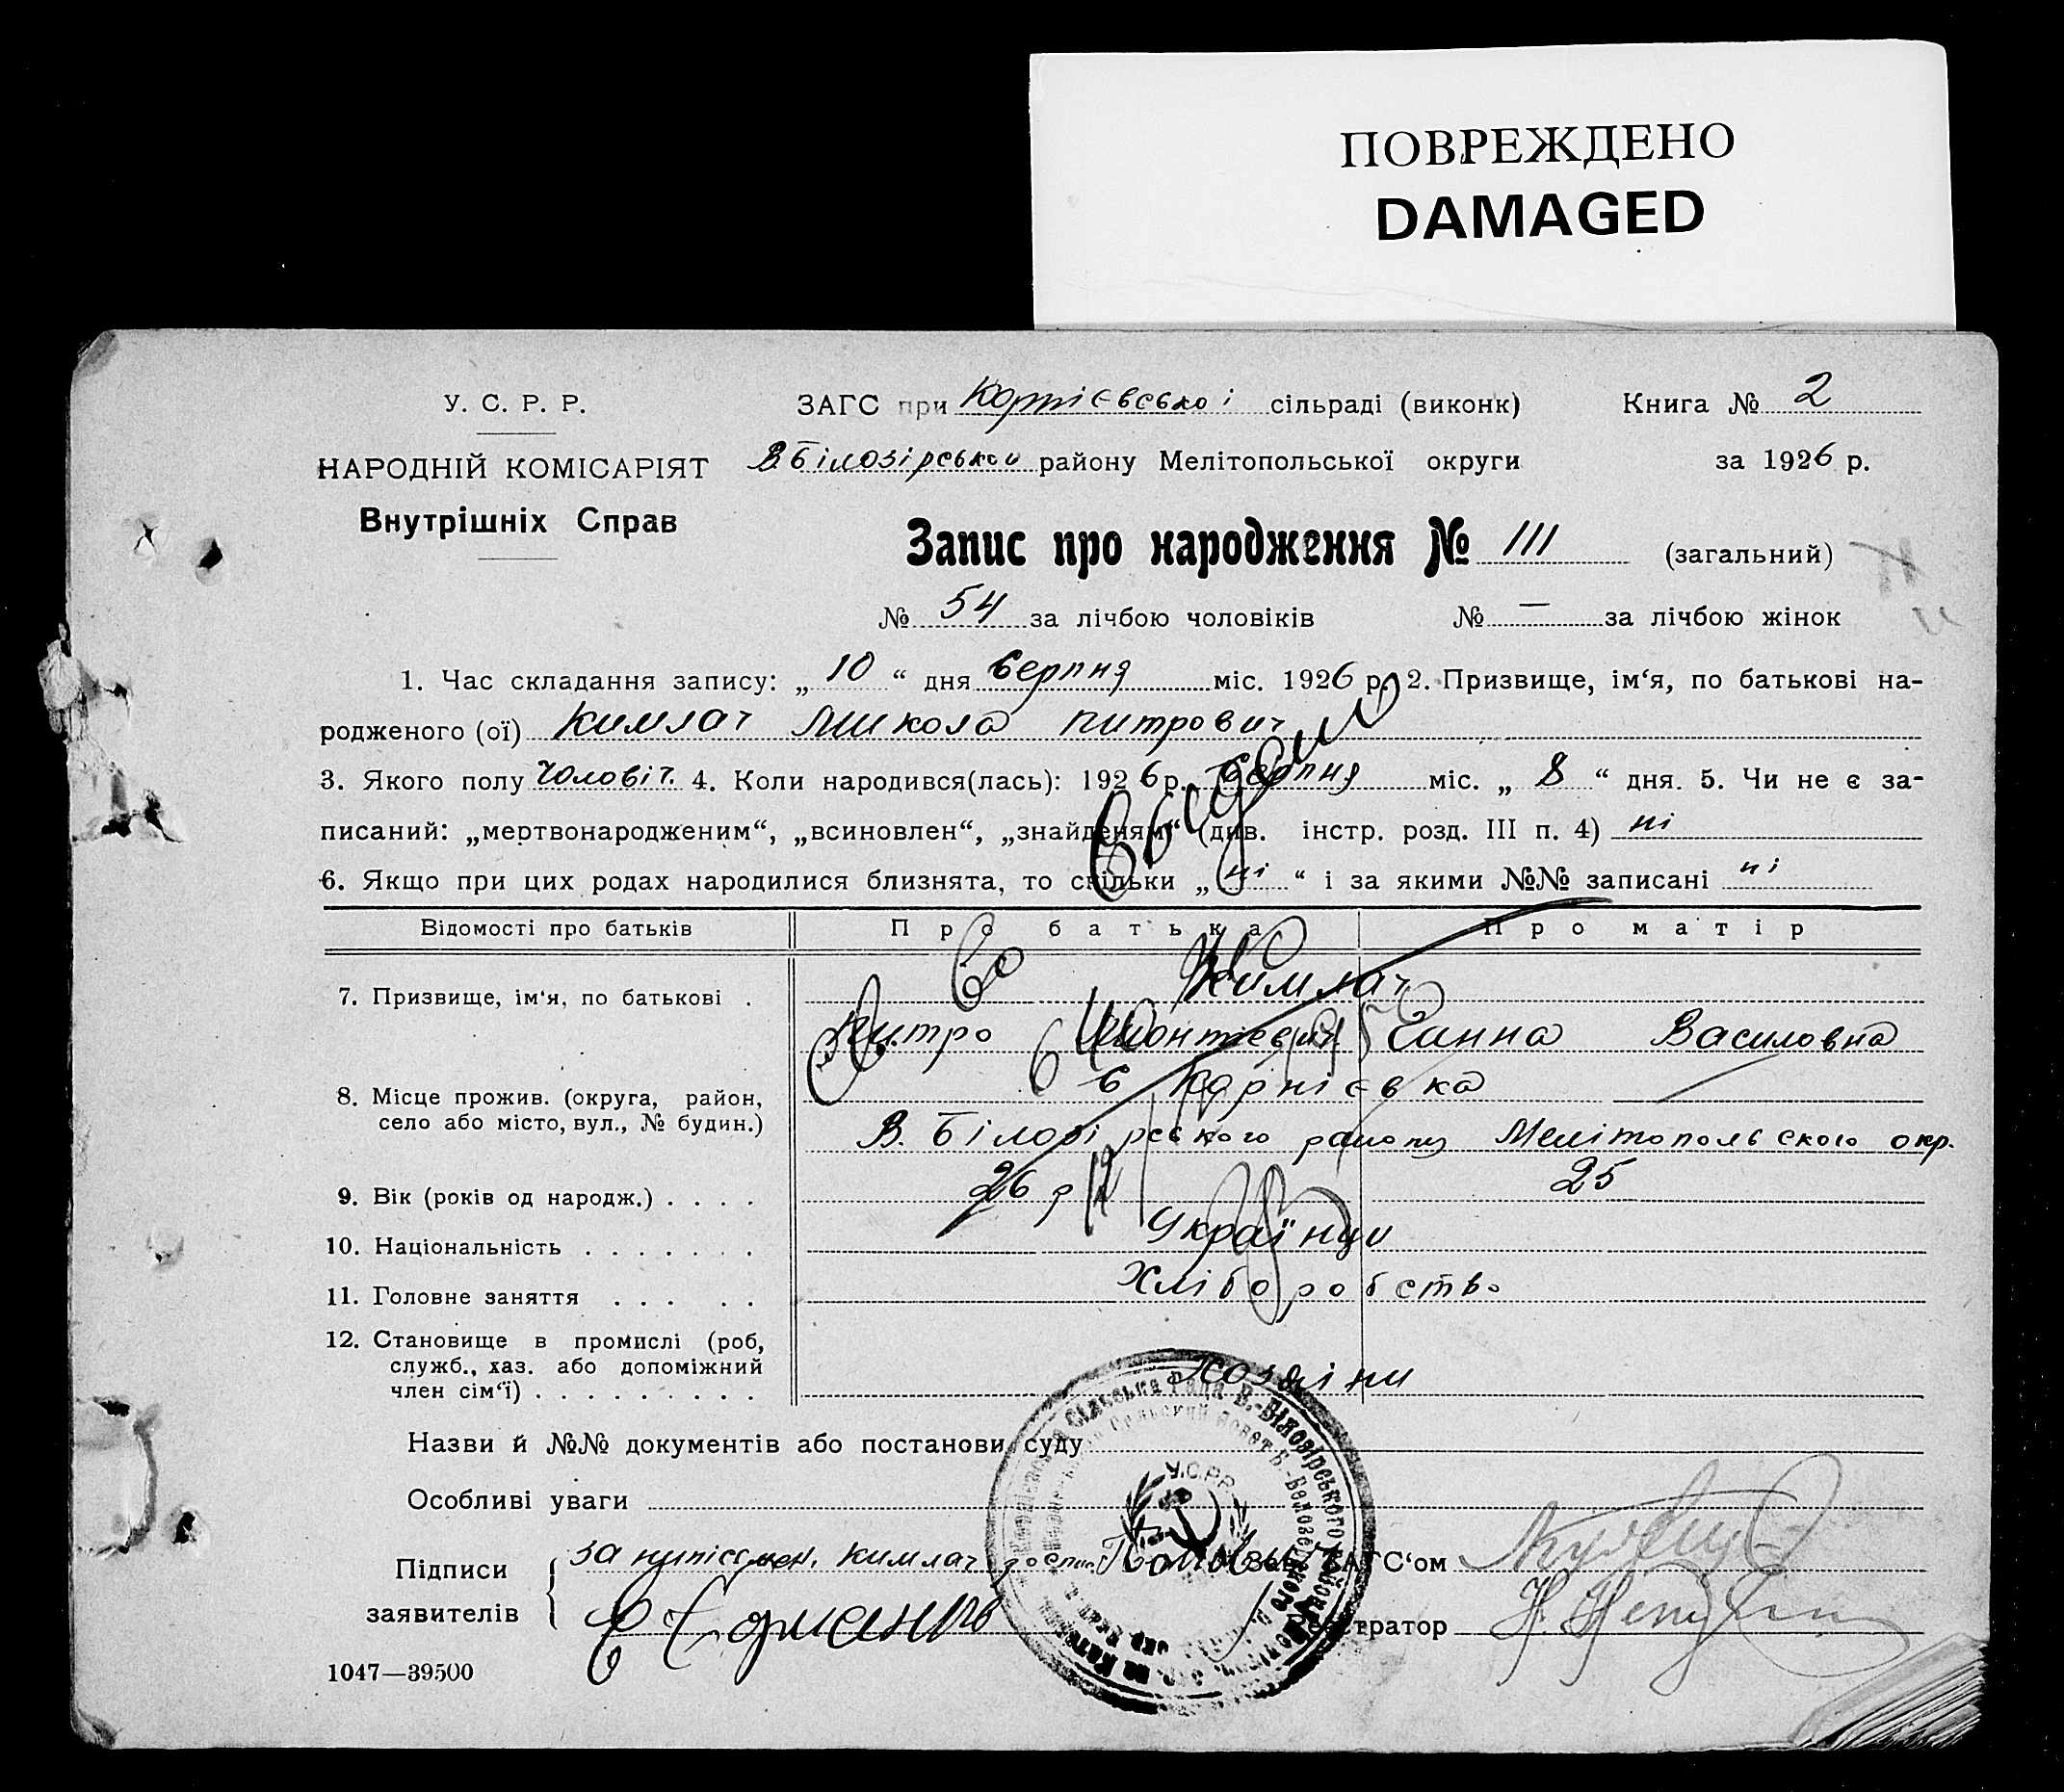 ПОВРЕЖДЕНО
DAMAGED
У. С. Р. Р.
ЗАГС при Корнієвської сільраді (виконк)
Книга № 2
НАРОДНІЙ КОМІСАРІЯТ
В Білозірської району Мелітопольської округи
за 1926 р.
Внутрішніх Справ
Запис про народження № 111 (загальний)
№ 54 за лічбою чоловіків № — за лічбою жінок
1. Час складання запису: „ 10 “ дня Серпня міс. 1926 р. 2. Призвище, ім‘я, по батькові на-
родженого (ої) Кимлач Микола Питрович
3. Якого полу Чоловіч. 4. Коли народився(лась): 1926 р. Серпня міс. „ 8 “ дня. 5. Чи не є за-
писаний: „мертвонародженим“, „всиновлен“, „знайденям“ (див. інстр. розд. III п. 4) ні
6. Якщо при цих родах народилися близнята, то скільки „ ні “ і за якими №№ записані ні
Відомості про батьків
Про батька
Про матір
7. Призвище, ім‘я, по батькові .
Кимлач
Питро Ганна Василовна
8. Місце прожив. (округа, район,
село або місто, вул., № будин.)
с Корнієвка
В. Білозірського району Мелітопольского окр.
9. Вік (років од народж.) . . . .
26 р
25
10. Національність . . . . . . .
Українци
11. Головне заняття . . . . .
Хліборобство
12. Становище в промислі (роб,
служб., хаз. або допоміжний
член сім‘ї) . . . . . . . . .
Хозяіни
Назви й №№ документів або постанови суду
Особливі уваги
У.С.Р.Р.
Підписи
заявителів
за Кимлач
Зав. ЗАГС‘ом
Реєстратор
1047—39500